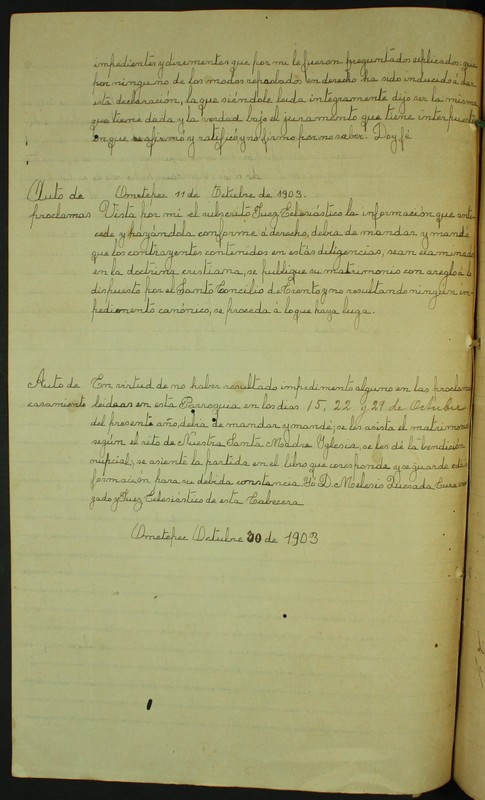 impedientes y dirimentes que por mi le fueron preguntados esplicados: que
por ninguno de los modos reprobados en derecho ha sido inducido á dar
esta declaración, la que siéndole leida integramente dijo ser la misma
que tiene dada y la verdad bajo el juramento que tiene interpuesto
en que se afirmó y ratificó y no firmo por no saber. Doy fé
Auto de Ometepec 11 de Octubre de 1903.
proclamas Vista por mi el subscrito Juez Eclesiástico la información que ante-
cede y hayándola conforme á derecho, debia de mandar y mandé
que los contrayentes contenidos en estás diligencias, sean examinados
en la doctrina cristiana, se publique su matrimonio con areglo á lo
dispuesto por el Santo Concilio de Trento y no resultando ningún im-
pedimento canónico, se proceda á lo que haya luga.
Auto de En virtud de no haber resultado impedimento alguno en las proclamas
casamiento leidas en esta Parroquia en los dias 15, 22 y 29 de Octubre
del presente año, debia de mandar y mandé; se les asista el matrimonio
según el rito de Nuestra Santa Madre Yglesia, se les dé la bendición
nupcial; se asiente la partida en el libro que coresponde y se guarde esta in-
formación para su debida constancia Yo D. Melesio Quesada Cura encar-
gado y Juez Eclesiástico de esta Cabecera
Ometepec Octubre 30 de 1903